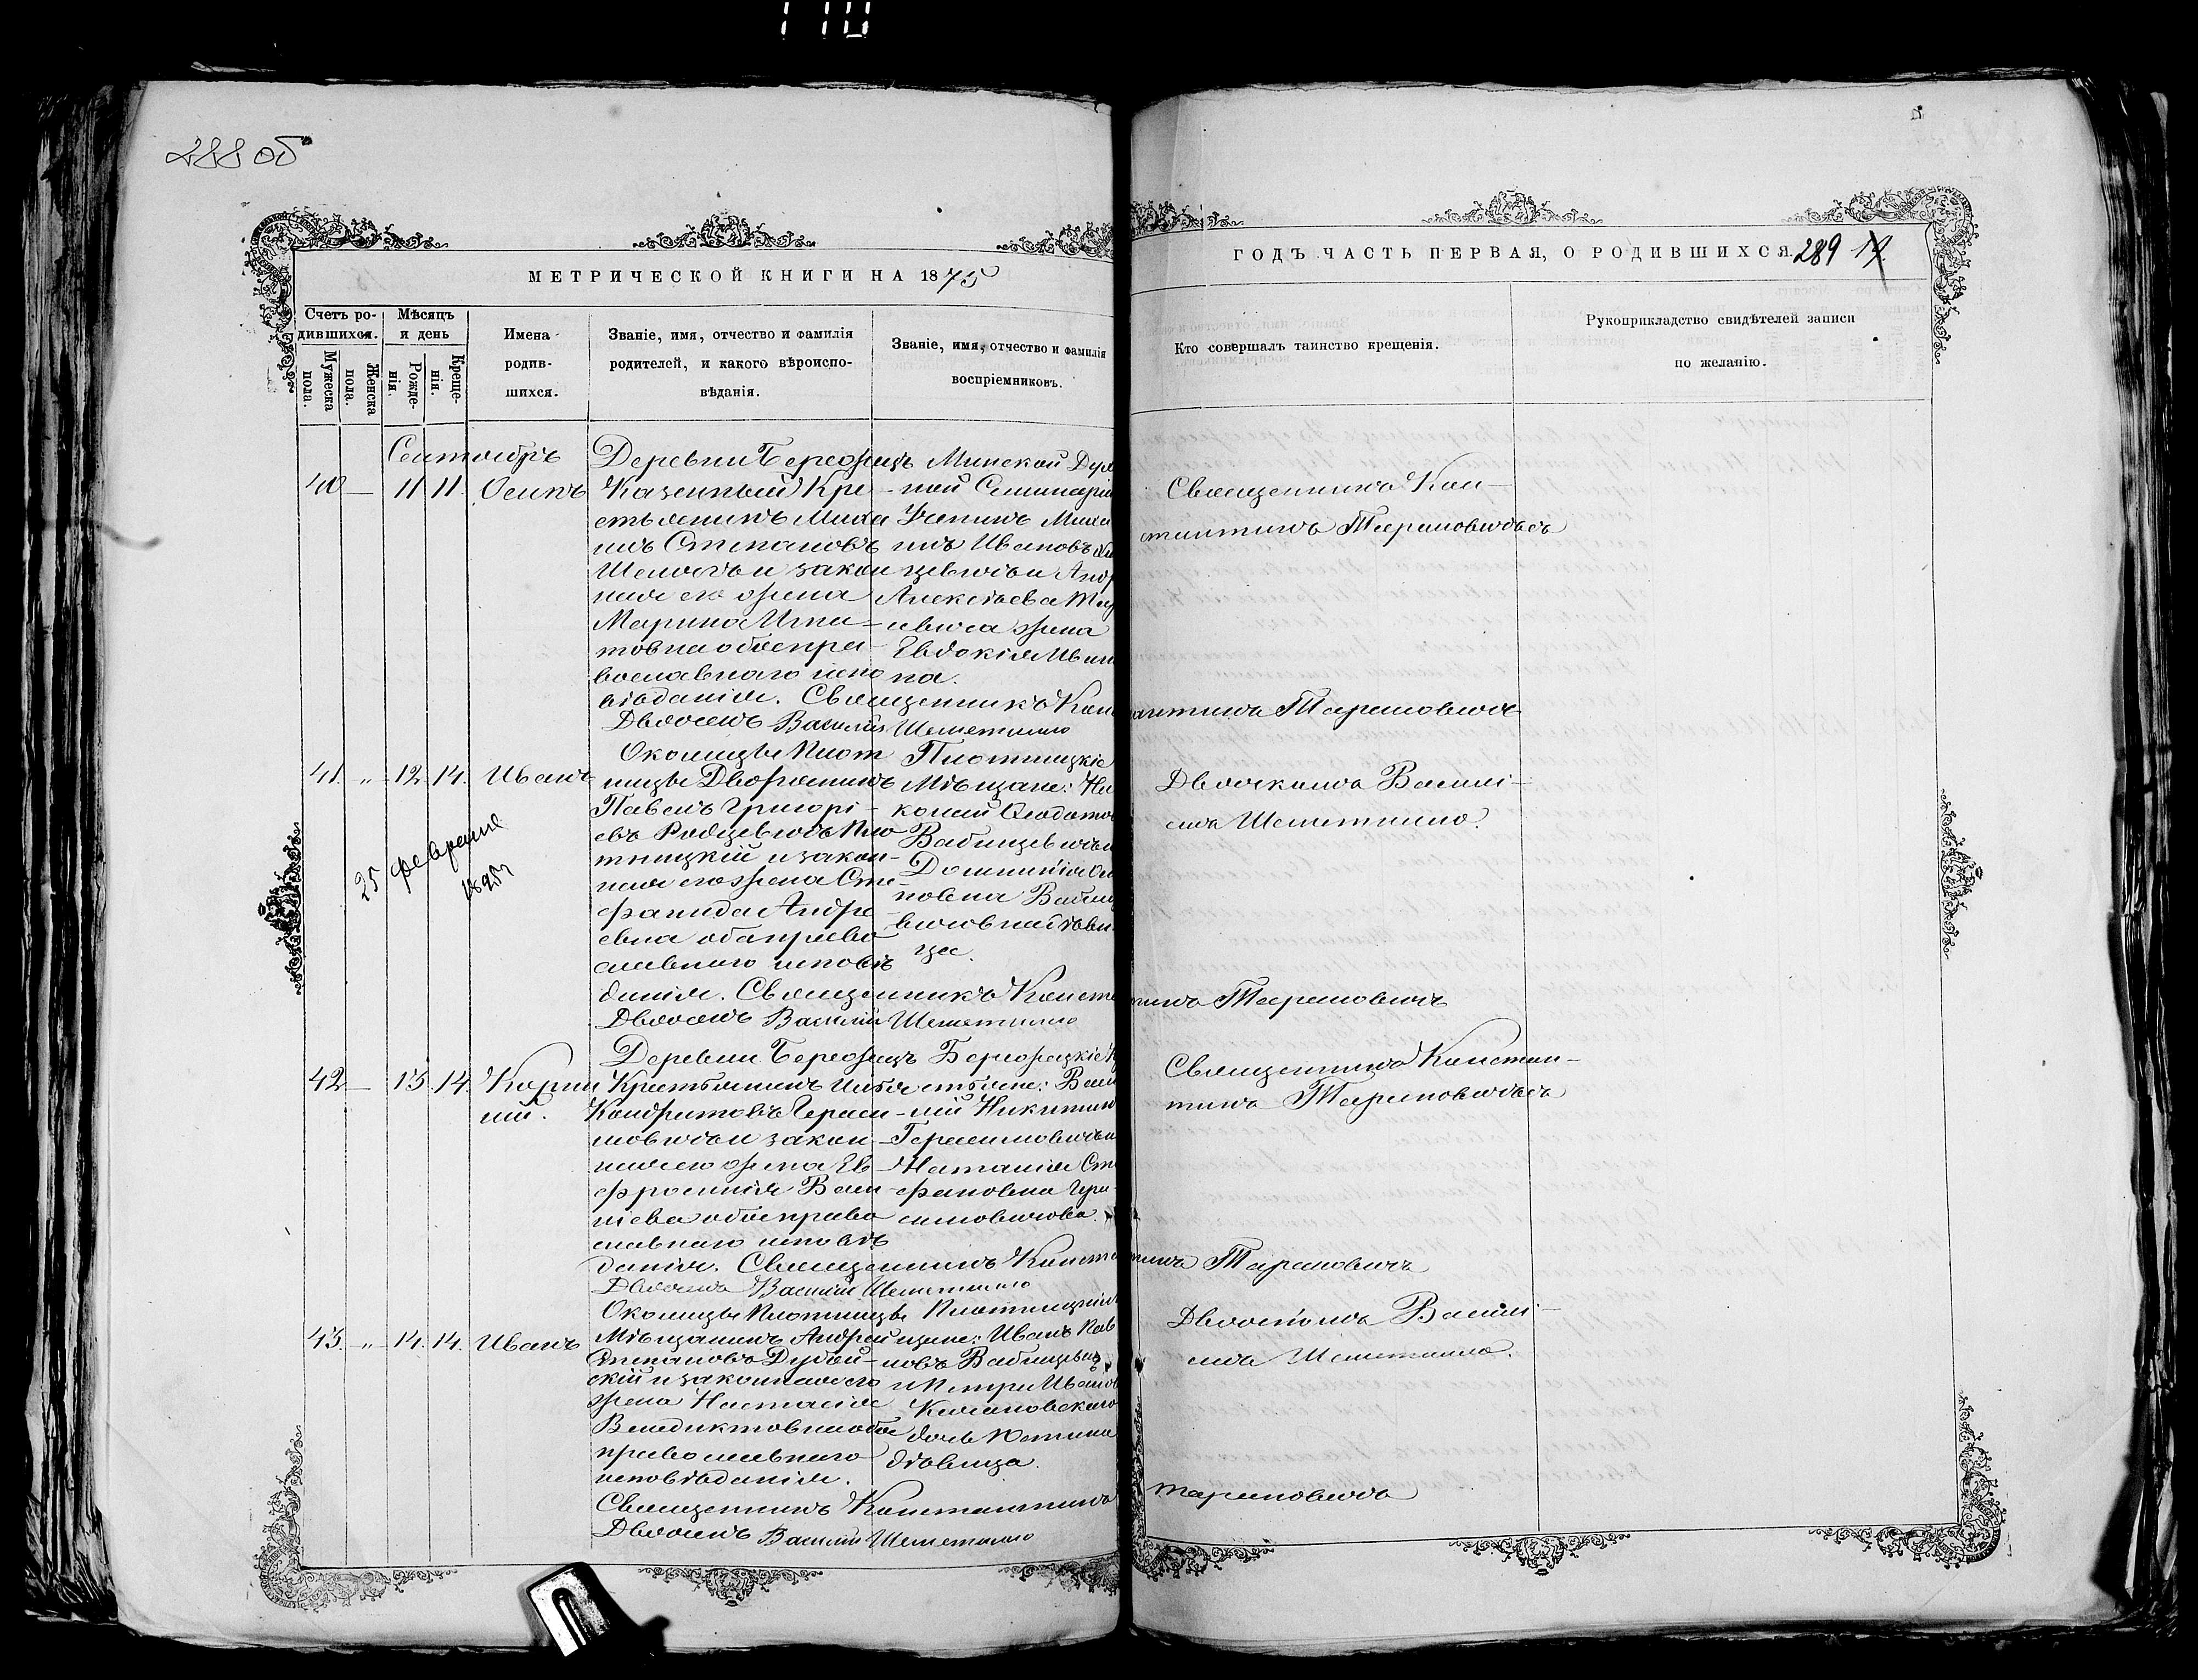 110
288 об
МЕТРИЧЕСКОЙ КНИГИ НА 1875
ГОДЪ ЧАСТЬ ПЕРВАЯ, О РОДИВШИХСЯ. 289
Счетъ ро-
дившихся.
Мужеска
пола.
Женска
пола.
Мѣсяцъ
и день
Рожде-
нія.
Креще-
нія.
Имена
родив-
шихся.
Званіе, имя, отчество и фамилія
родителей, и какого вѣроиспо-
вѣданія.
Званіе, имя, отчество и фамилія
воспріемниковъ.
Кто совершалъ таинство крещенія.
Рукоприкладство свидѣтелей записи
по желанію.
Сентябрь
40 — 11 11. Осипъ
Деревни Бережецъ
Казенный Кре-
стьянинъ Миха
илъ Степановъ
и закон
ная его жена
Марина Игна-
товна обое пра-
вославнаго испо
вѣданія. Священникъ Константинъ Тарановичъ
Дьячекъ Василій Шеметилло
Минской Дух
ной Семинаріи
Михаи
илъ Ивановъ
Алексѣева
жена
Евдокія Иван
на.
Священникъ Кон-
стантинъ Тарановичъ
41. „ 12. 14. Иванъ
25 февраля
1895 г
Околицы Плот
ницы Дворянинъ
Павелъ Григорі-
евъ Радцевичъ Пло
тницкій и закон-
ная его жена Сте-
фанида Андре-
евна оба право
славнаго исповѣ
данія. Священникъ Константинъ Тарановичъ
Дьячекъ Василій Шеметилло
Плотницкіе
Мѣщане: Ни
Вабищевичъ
Домникія
повна Вабище
вичовна дѣви
ца.
Дьячекъ Васи
Шеметилло.
42 — 13. 14. Корни
лій.
Деревни Бережецъ
Крестьянинъ Илья
Кондратовъ Гераси-
мовичъ и закон-
ная его жена Ев-
фросинія Васи-
ліева обое право
славнаго исповѣ
данія. Священникъ Константинъ Тарановичъ
Дьячекъ Василій Шеметилло
Бережецкіе К
стьяне: Васи
лій Никитин
Герасимовичъ и
Наталія Сте
фановна Гера-
симовичова.
Священникъ Констан-
тинъ Тарановичъ
43. „ 14. 14. Иванъ
Околицы Плотницы
Мѣщанинъ Андрей
Степановъ Дубой-
скій и законная его
жена Настасія
Венедиктовна обое
православнаго
исповѣданія.
Священникъ Константинъ Тарановичъ
Дьячекъ Василій Шеметилло
щане: Иванъ Пав
ловъ Вабищевичъ
и Петра Иванов
дочь Юстина
дѣвица.
Шеметилло.